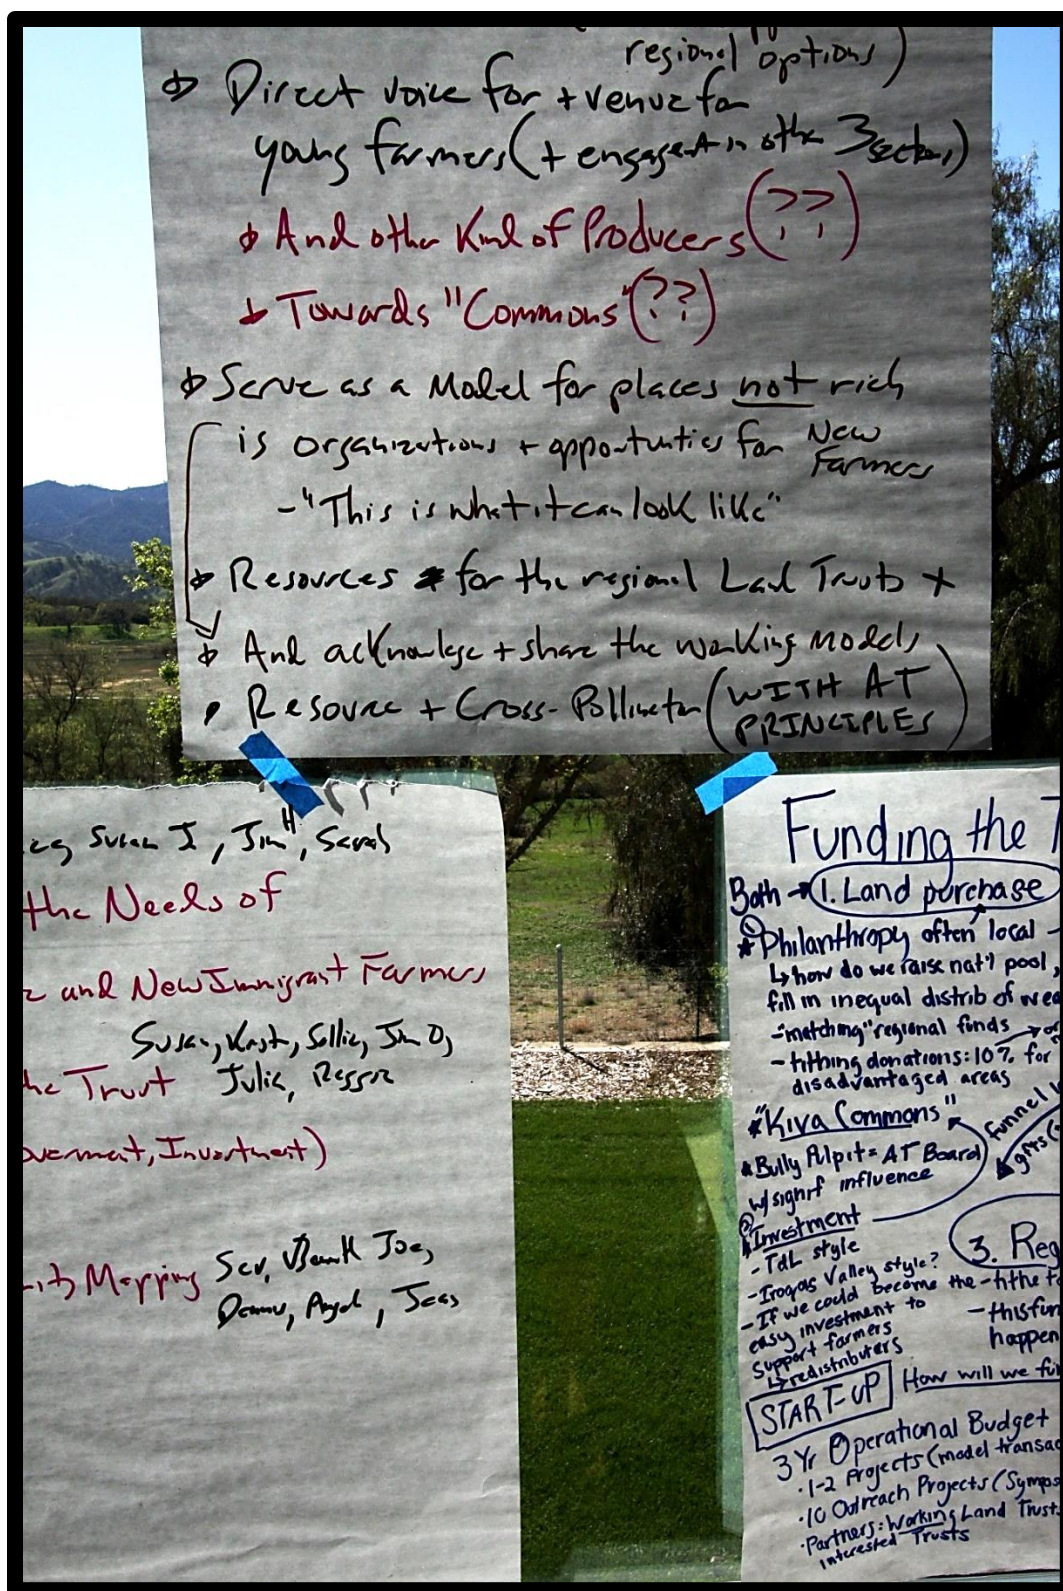 regional options)
Direct voice for + venue for
young farmers (+ engagent in other 3 sectors)
And other Kind of Producers (??)
Towards "Commons" (??)
Serve as a Model for places not rich
is organizations + opportunities for New
Farmers
- "This is what it can look like"
Resources for the regional Land Trusts +
And acknowlege + share the working models
Resource + Cross-Pollinator (WITH AT
PRINCIPLES)
Susan I, Jim H, Sarah
the Needs of
and New Immigrant Farmers
Susan, Sallie, Jim O,
Trust Julia,
Investment)
Mapping Joe,
Funding the T
Both → 1. Land purchase
* Philanthropy often local -
↳ how do we raise nat'l pool,
fill in inequal distrib of wea
- "matching" regional funds
- tithing donations: 10% for
disadvantaged areas
* "Kiva Commons"
funnel
gifts
* Bully Pulpit = AT Board
w/ signif influence
② Investment
- TdL style
3. Reg
- Iroqois Valley style?
- If we could become the - tithe to
easy investment to
- this fun
support farmers
happen
↳ redistributers
START-UP How will we fu
3 Yr Operational Budget
· 1-2 Projects (model transac
· 10 Outreach Projects (Sympos
· Partners: Working Land Trust
interested Trusts